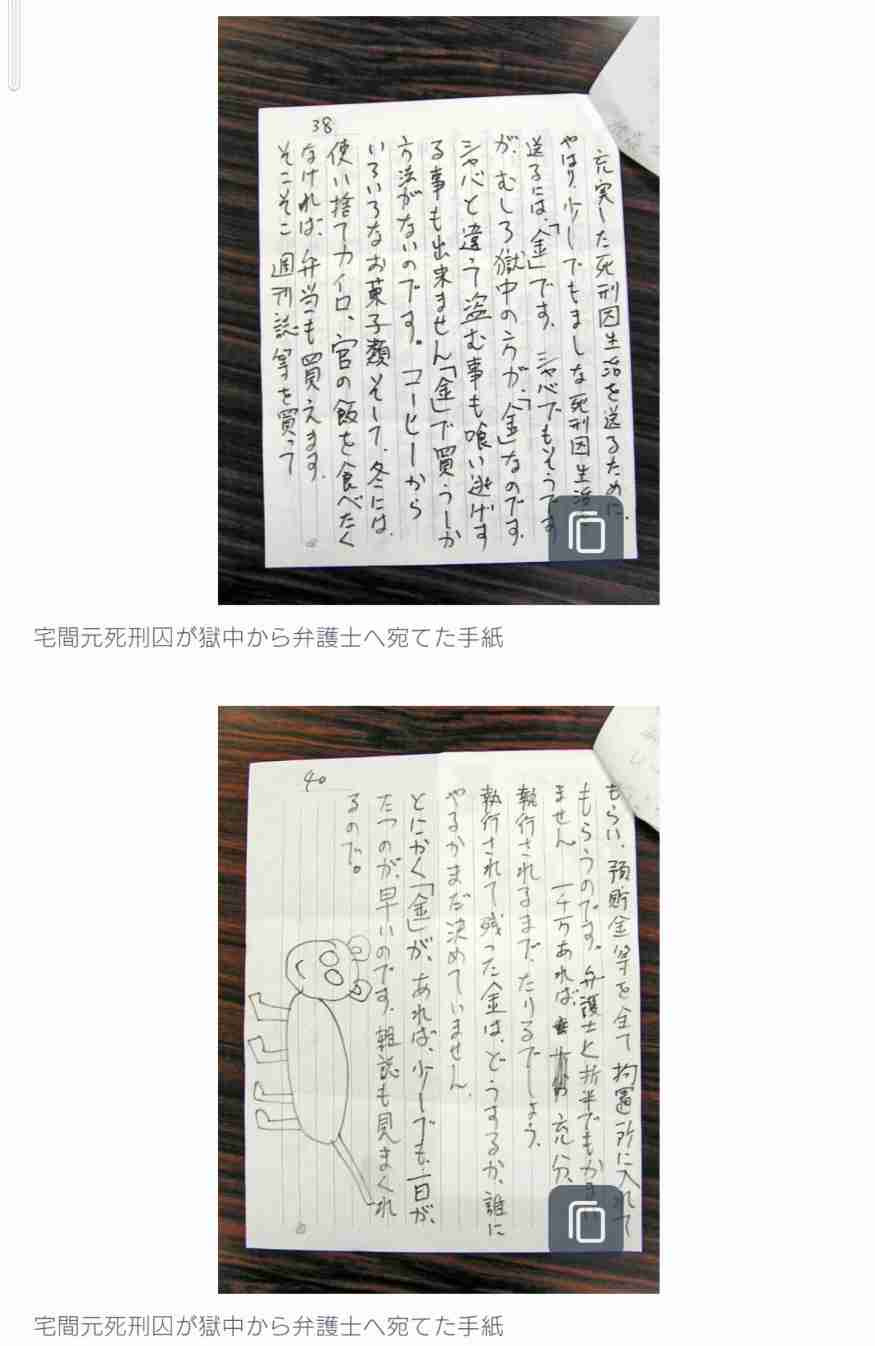 38
充実した死刑囚生活を送るために、
やはり、少しでもましな死刑囚生活
送るには、「金」です。シャバでもそうです
が、むしろ獄中の方が、「金」なのです。
シャバと違う盗む事も喰い逃げす
る事も出来ません「金」で買うしか
方法がないのです。コーヒーから
いろいろなお菓子類そして、冬には、
使い捨てカイロ、官の飯を食べたく
なければ、弁当も買えます。
そこそこ週刊誌等を買って
宅間元死刑囚が獄中から弁護士へ宛てた手紙
40
もらい、預貯金等を全て拘置所に入れて
もらうのです。弁護士と折半でもかま
ません 一千万あれば 充分、
執行されるまで、たりるでしょう。
執行されて残った金は、どうするか、誰に
やるかまだ決めていません。
とにかく「金」が、あれば、少しでも、一日が、
たつのが、早いのです。雑誌も見まくれ
るので。
宅間元死刑囚が獄中から弁護士へ宛てた手紙